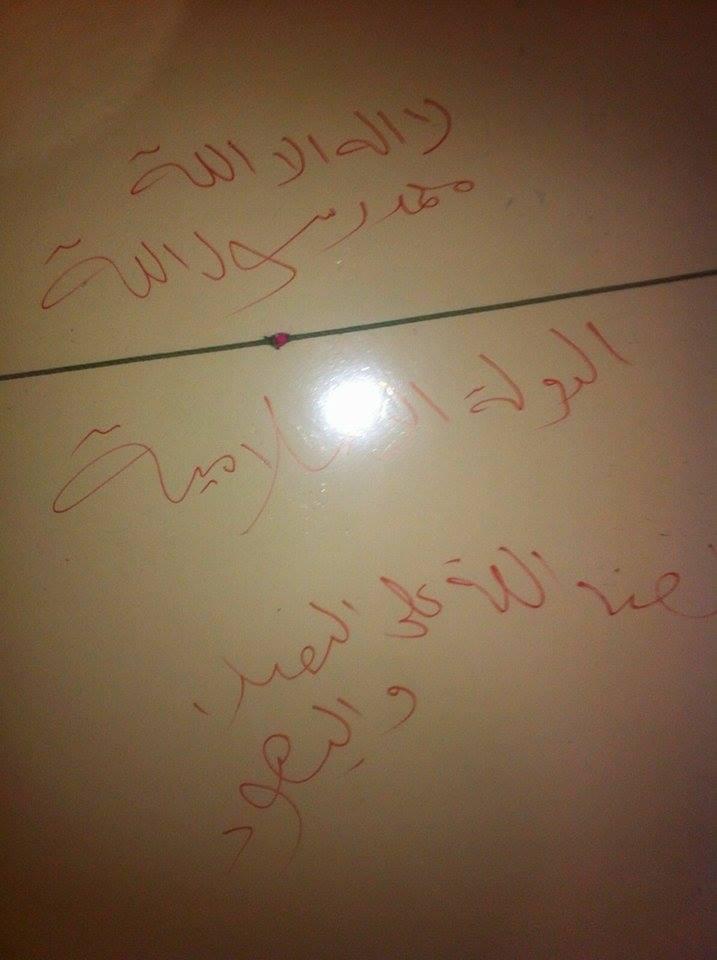 لا اله الا اللة
محمد رسول اللة
الدولة الاسلامية
لعنة اللة على النصارا
و اليهود